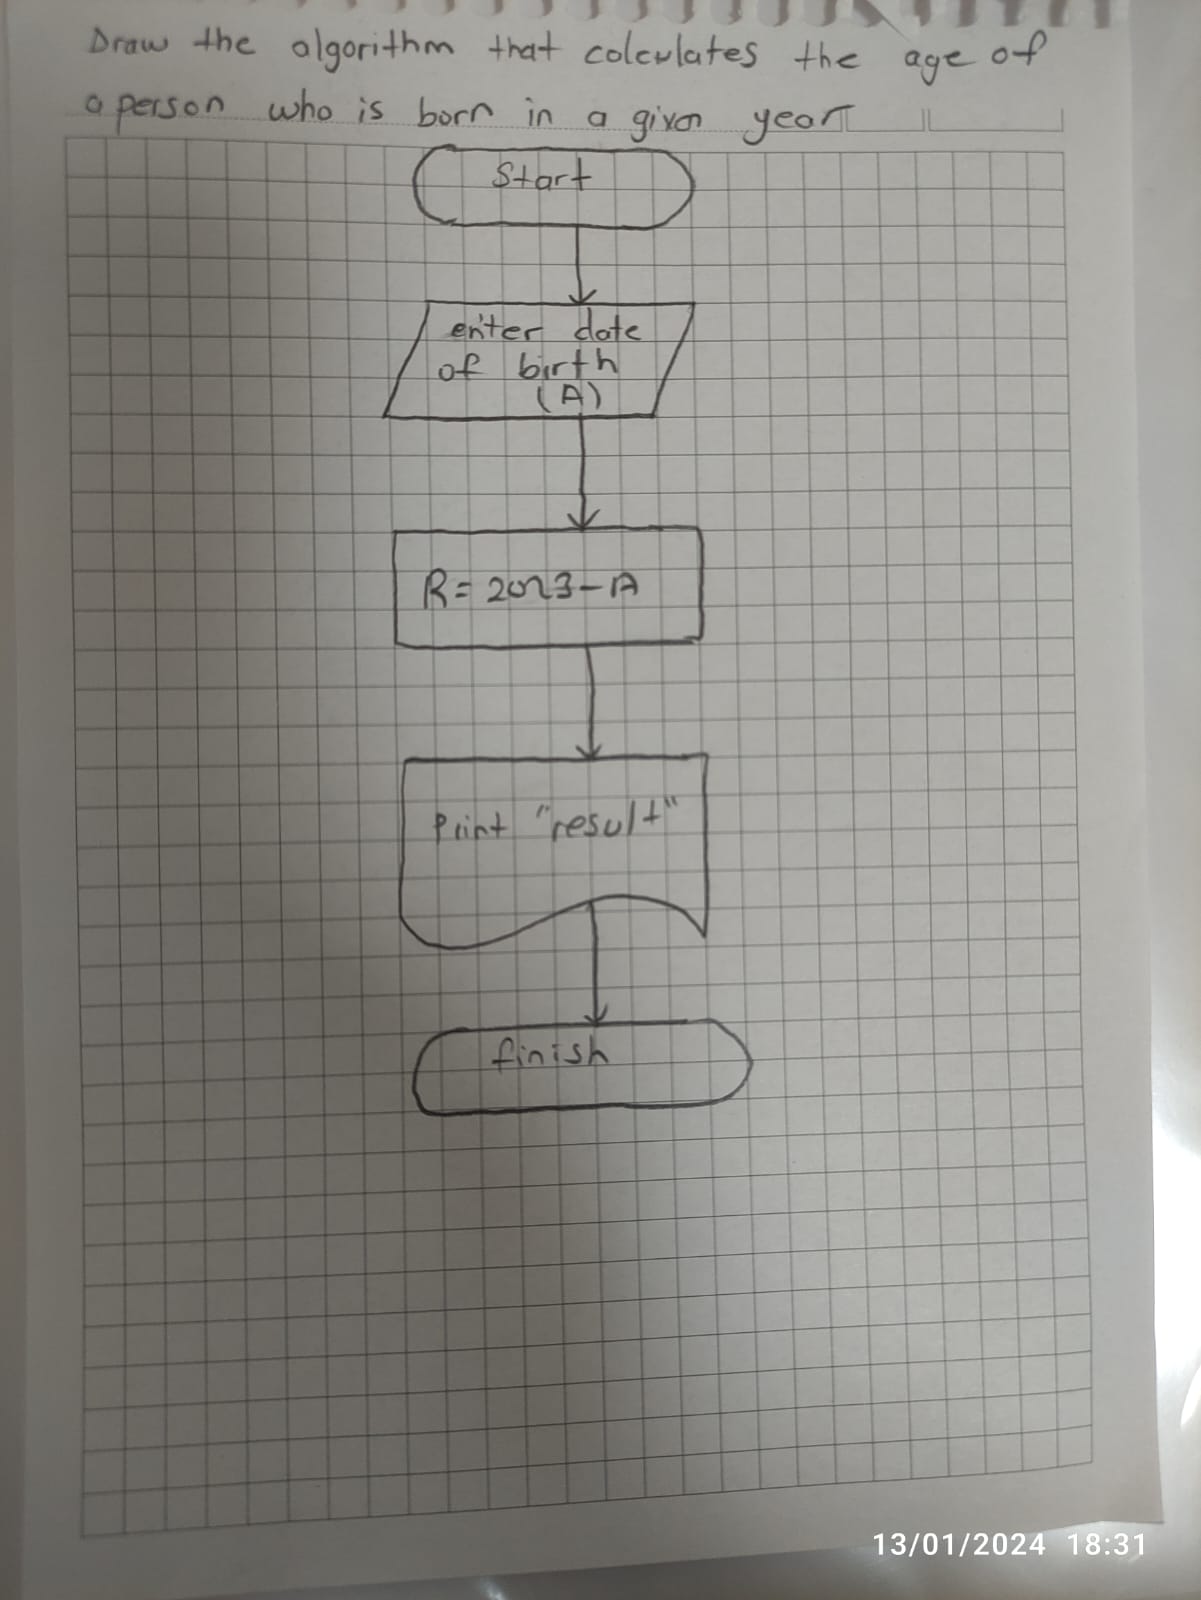 Draw the algorithm that colculates the age of
a person who is born in a given year
Start
enter date
of birth
(A)
R= 2023-A
Print "result"
finish
13/01/2024 18:31